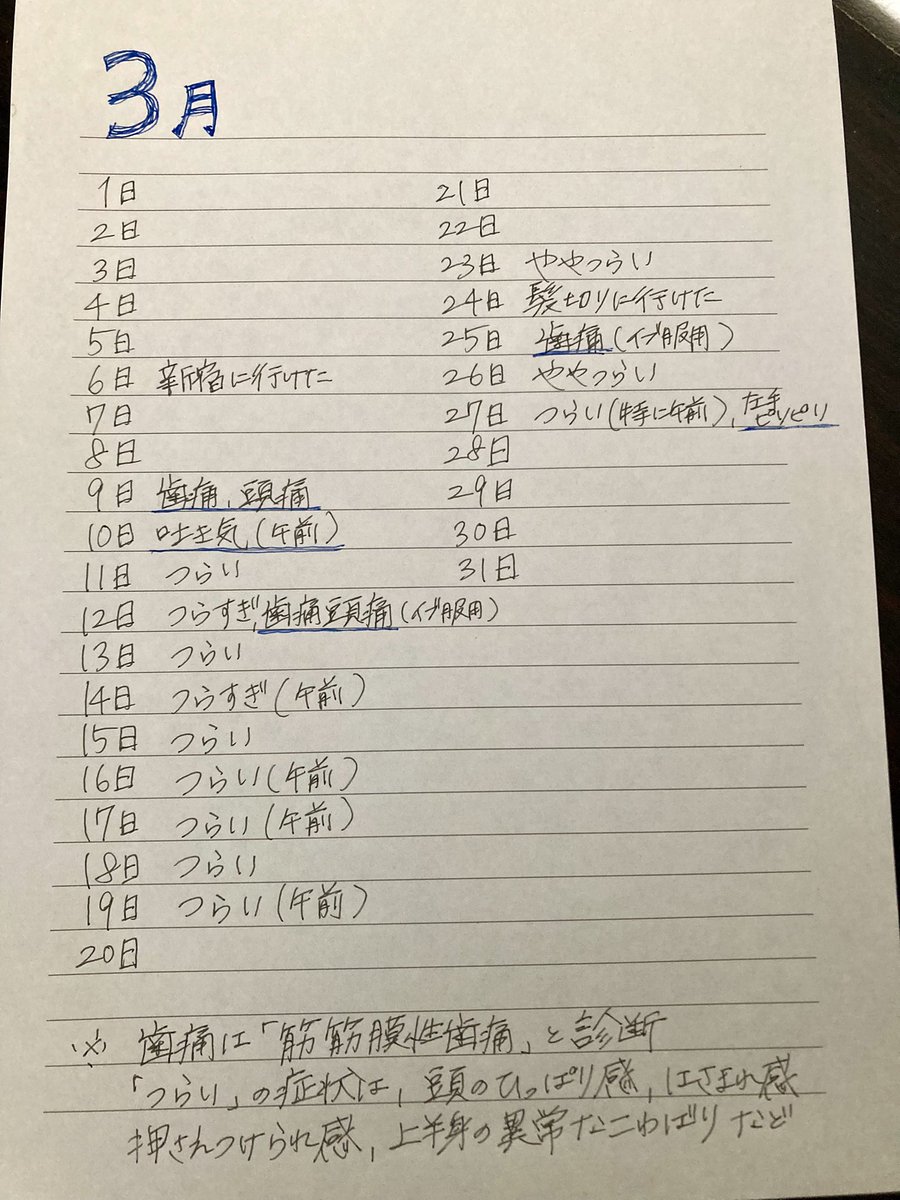 3月
1日
2日
3日
4日
5日
6日 新宿に行けた
7日
8日
9日 歯痛、頭痛
10日 吐き気(午前)
11日 つらい
12日 つらすぎ、歯痛頭痛(イブ服用)
13日 つらい
14日 つらすぎ(午前)
15日 つらい
16日 つらい(午前)
17日 つらい(午前)
18日 つらい
19日 つらい(午前)
20日
21日
22日
23日 ややつらい
24日 髪切りに行けた
25日 歯痛(イブ服用)
26日 ややつらい
27日 つらい(特に午前)、左手ピリピリ
28日
29日
30日
31日
※ 歯痛は「筋筋膜性歯痛」と診断
「つらい」の症状は、頭のひっぱり感、はさまれ感
押さえつけられ感、上半身の異常なこわばりなど